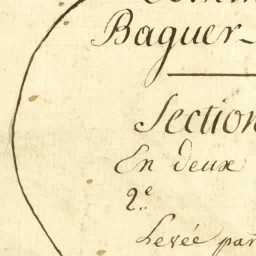 Baguer-
Section
En deux
2e
Levée par